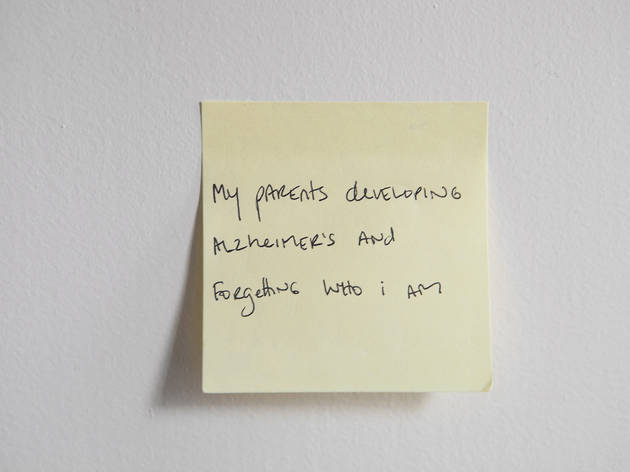 My parents developing
Alzheimer's and
Forgetting who i am